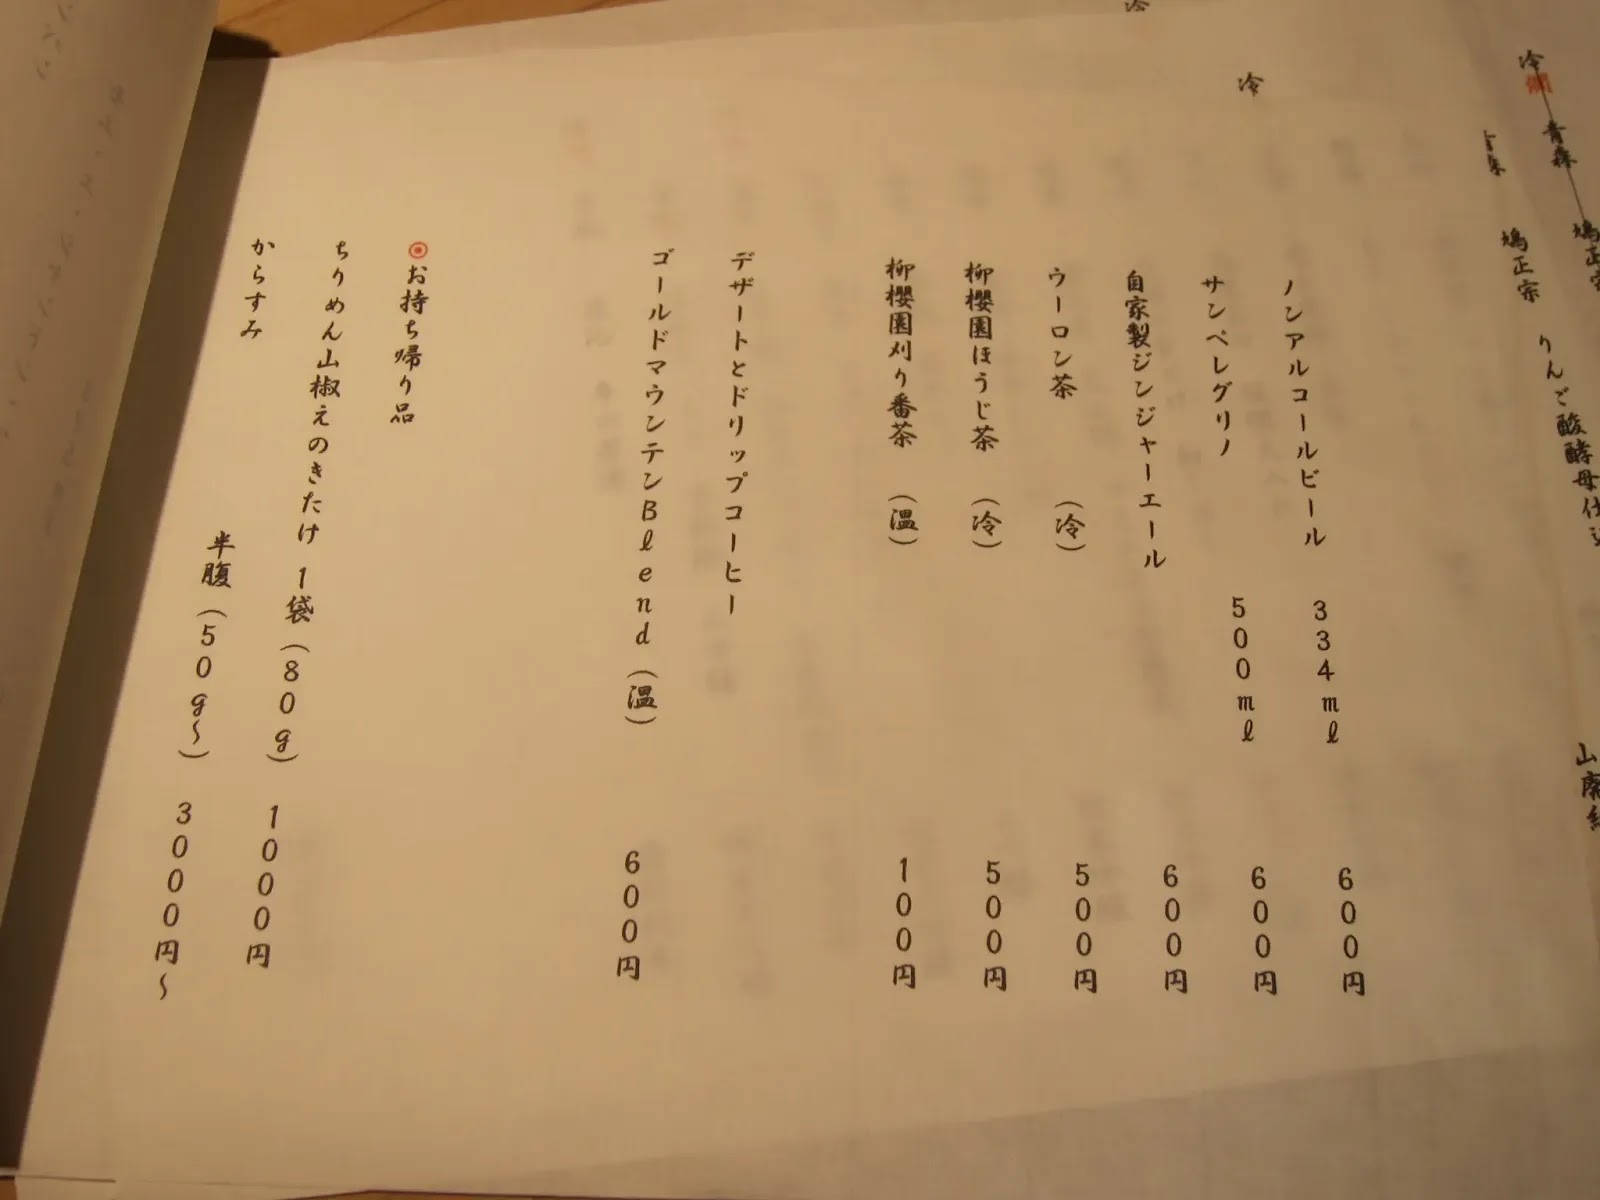 冷
燗
青森
鳩正宗
りんご酸酵母仕込
山廃純
冷
鳩正宗
冷
ノンアルコールビール 334ml 600円
サンペレグリノ 500ml 600円
自家製ジンジャーエール 600円
ウーロン茶 (冷) 500円
柳櫻園ほうじ茶 (冷) 500円
柳櫻園刈り番茶 (温) 100円
デザートとドリップコーヒー
ゴールドマウンテンBlend(温) 600円
◉お持ち帰り品
ちりめん山椒えのきたけ 1袋(80g) 1000円
からすみ 半腹(50g~) 3000円~